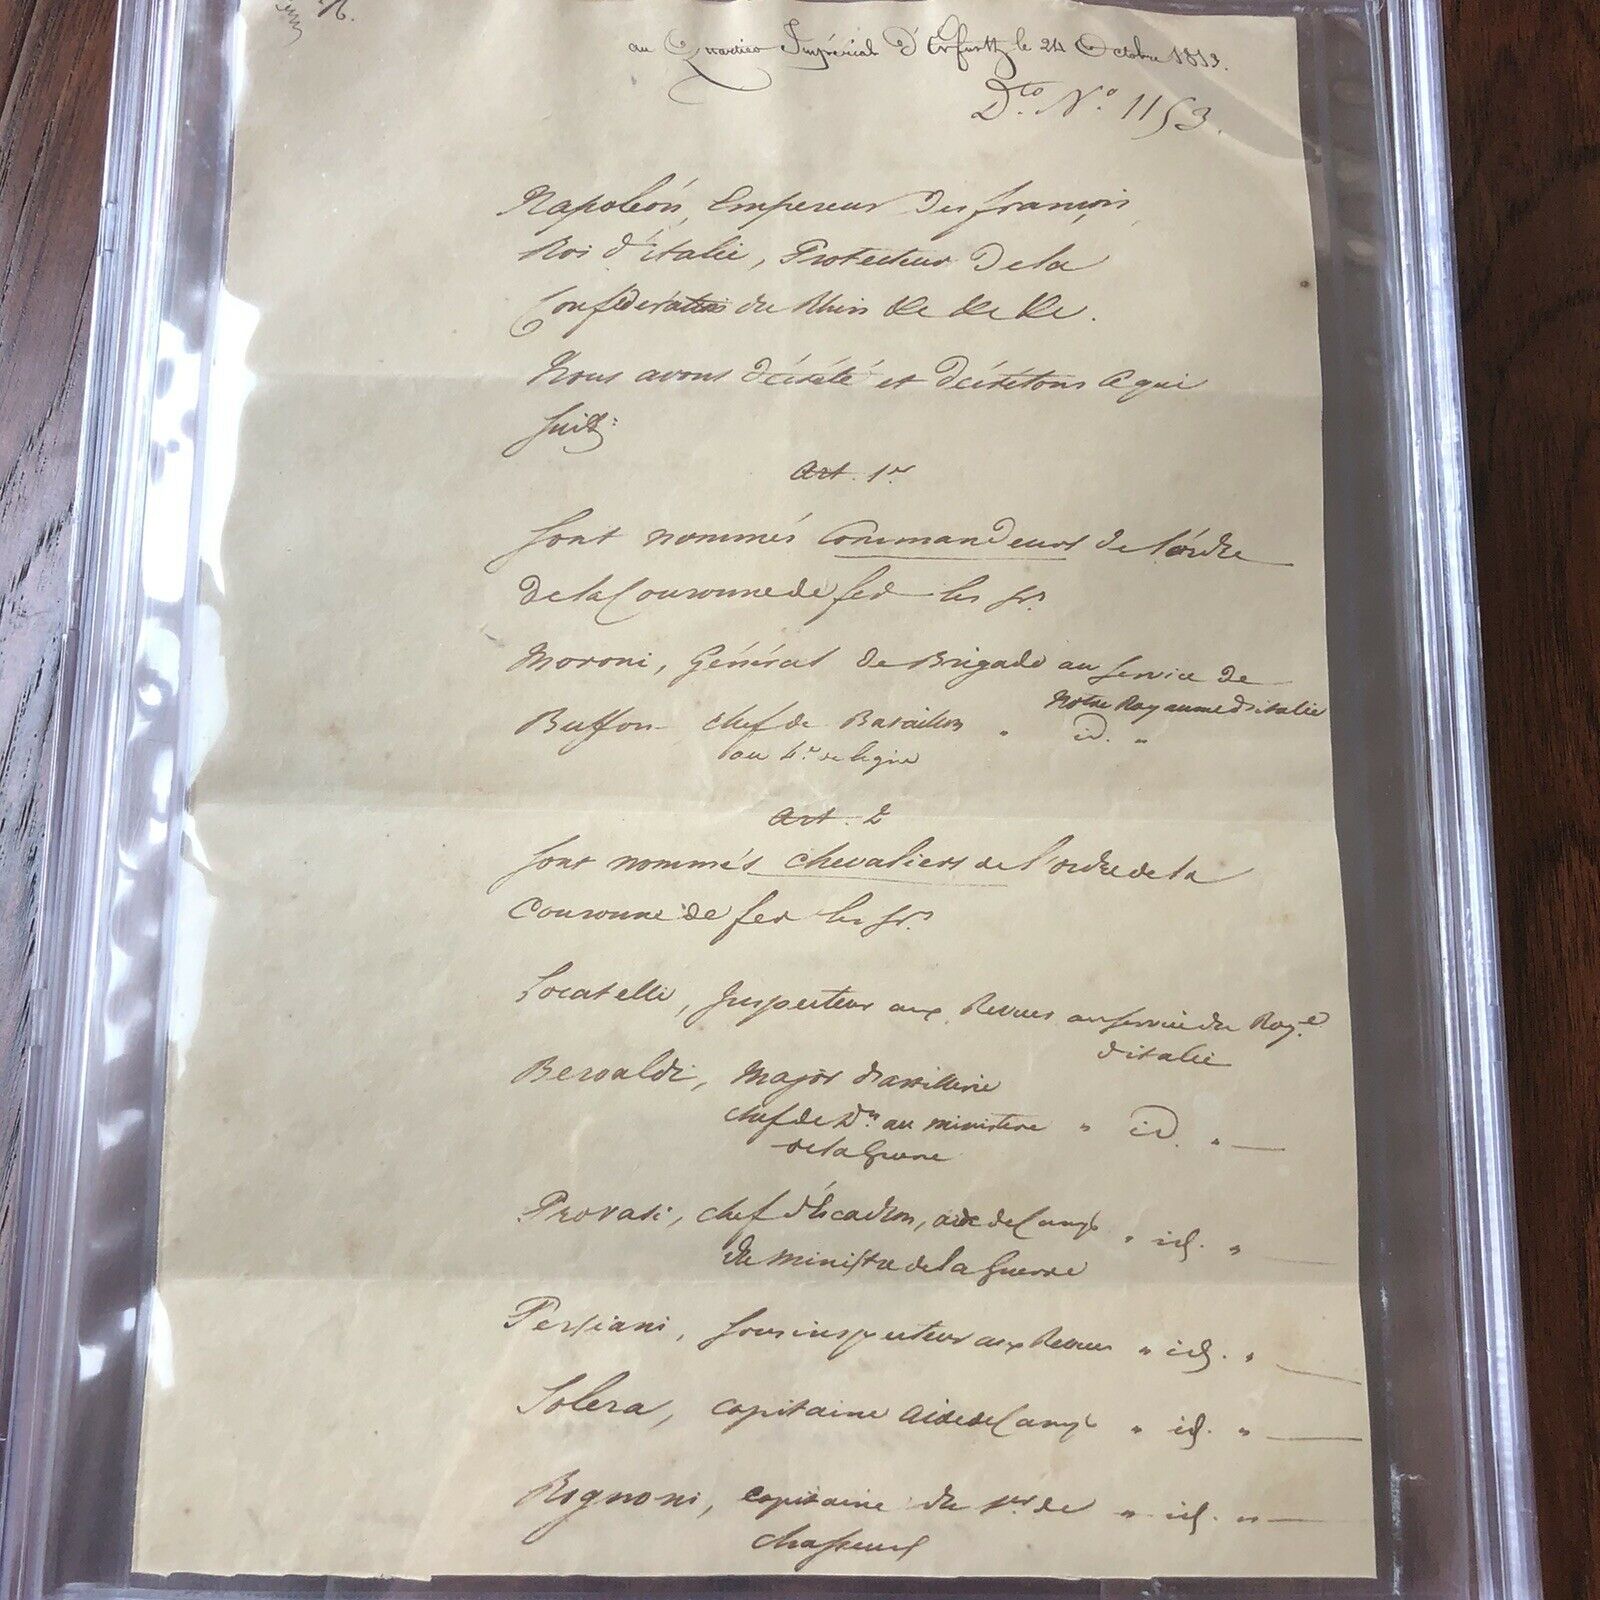 au Quartier Impérial d'Erfurth le 24 Octobre 1813.
D.to N.o 1153.
Napoléon, Empereur des françois,
Roi d'italie, Protecteur de la
Confédération du Rhin &c &c &c.
Nous avons décrété et décrétons ce qui
suit:
Art. 1er
Sont nommés Commandeurs de l'ordre
de la Couronne de fer les Srs.
Moroni, Général de Brigade au service de
notre Royaume d'italie
Buffon chef de Bataillon " id. "
au 4e de ligne
Art. 2
Sont nommés chevaliers de l'ordre de la
Couronne de fer les Srs.
Locatelli, Inspecteur aux Revues au service du Roy.e
d'italie
Beroaldi, Major d'artillerie
chef de Don au ministère " id. "
de la Guerre
Provasi, chef d'éscadron, aide de Camp " id. "
du ministre de la Guerre
Persiani, sous inspecteur aux Revues " id. "
Solera, capitaine aide de Camp " id. "
Rognoni, capitaine du 1er de " id. "
chasseurs